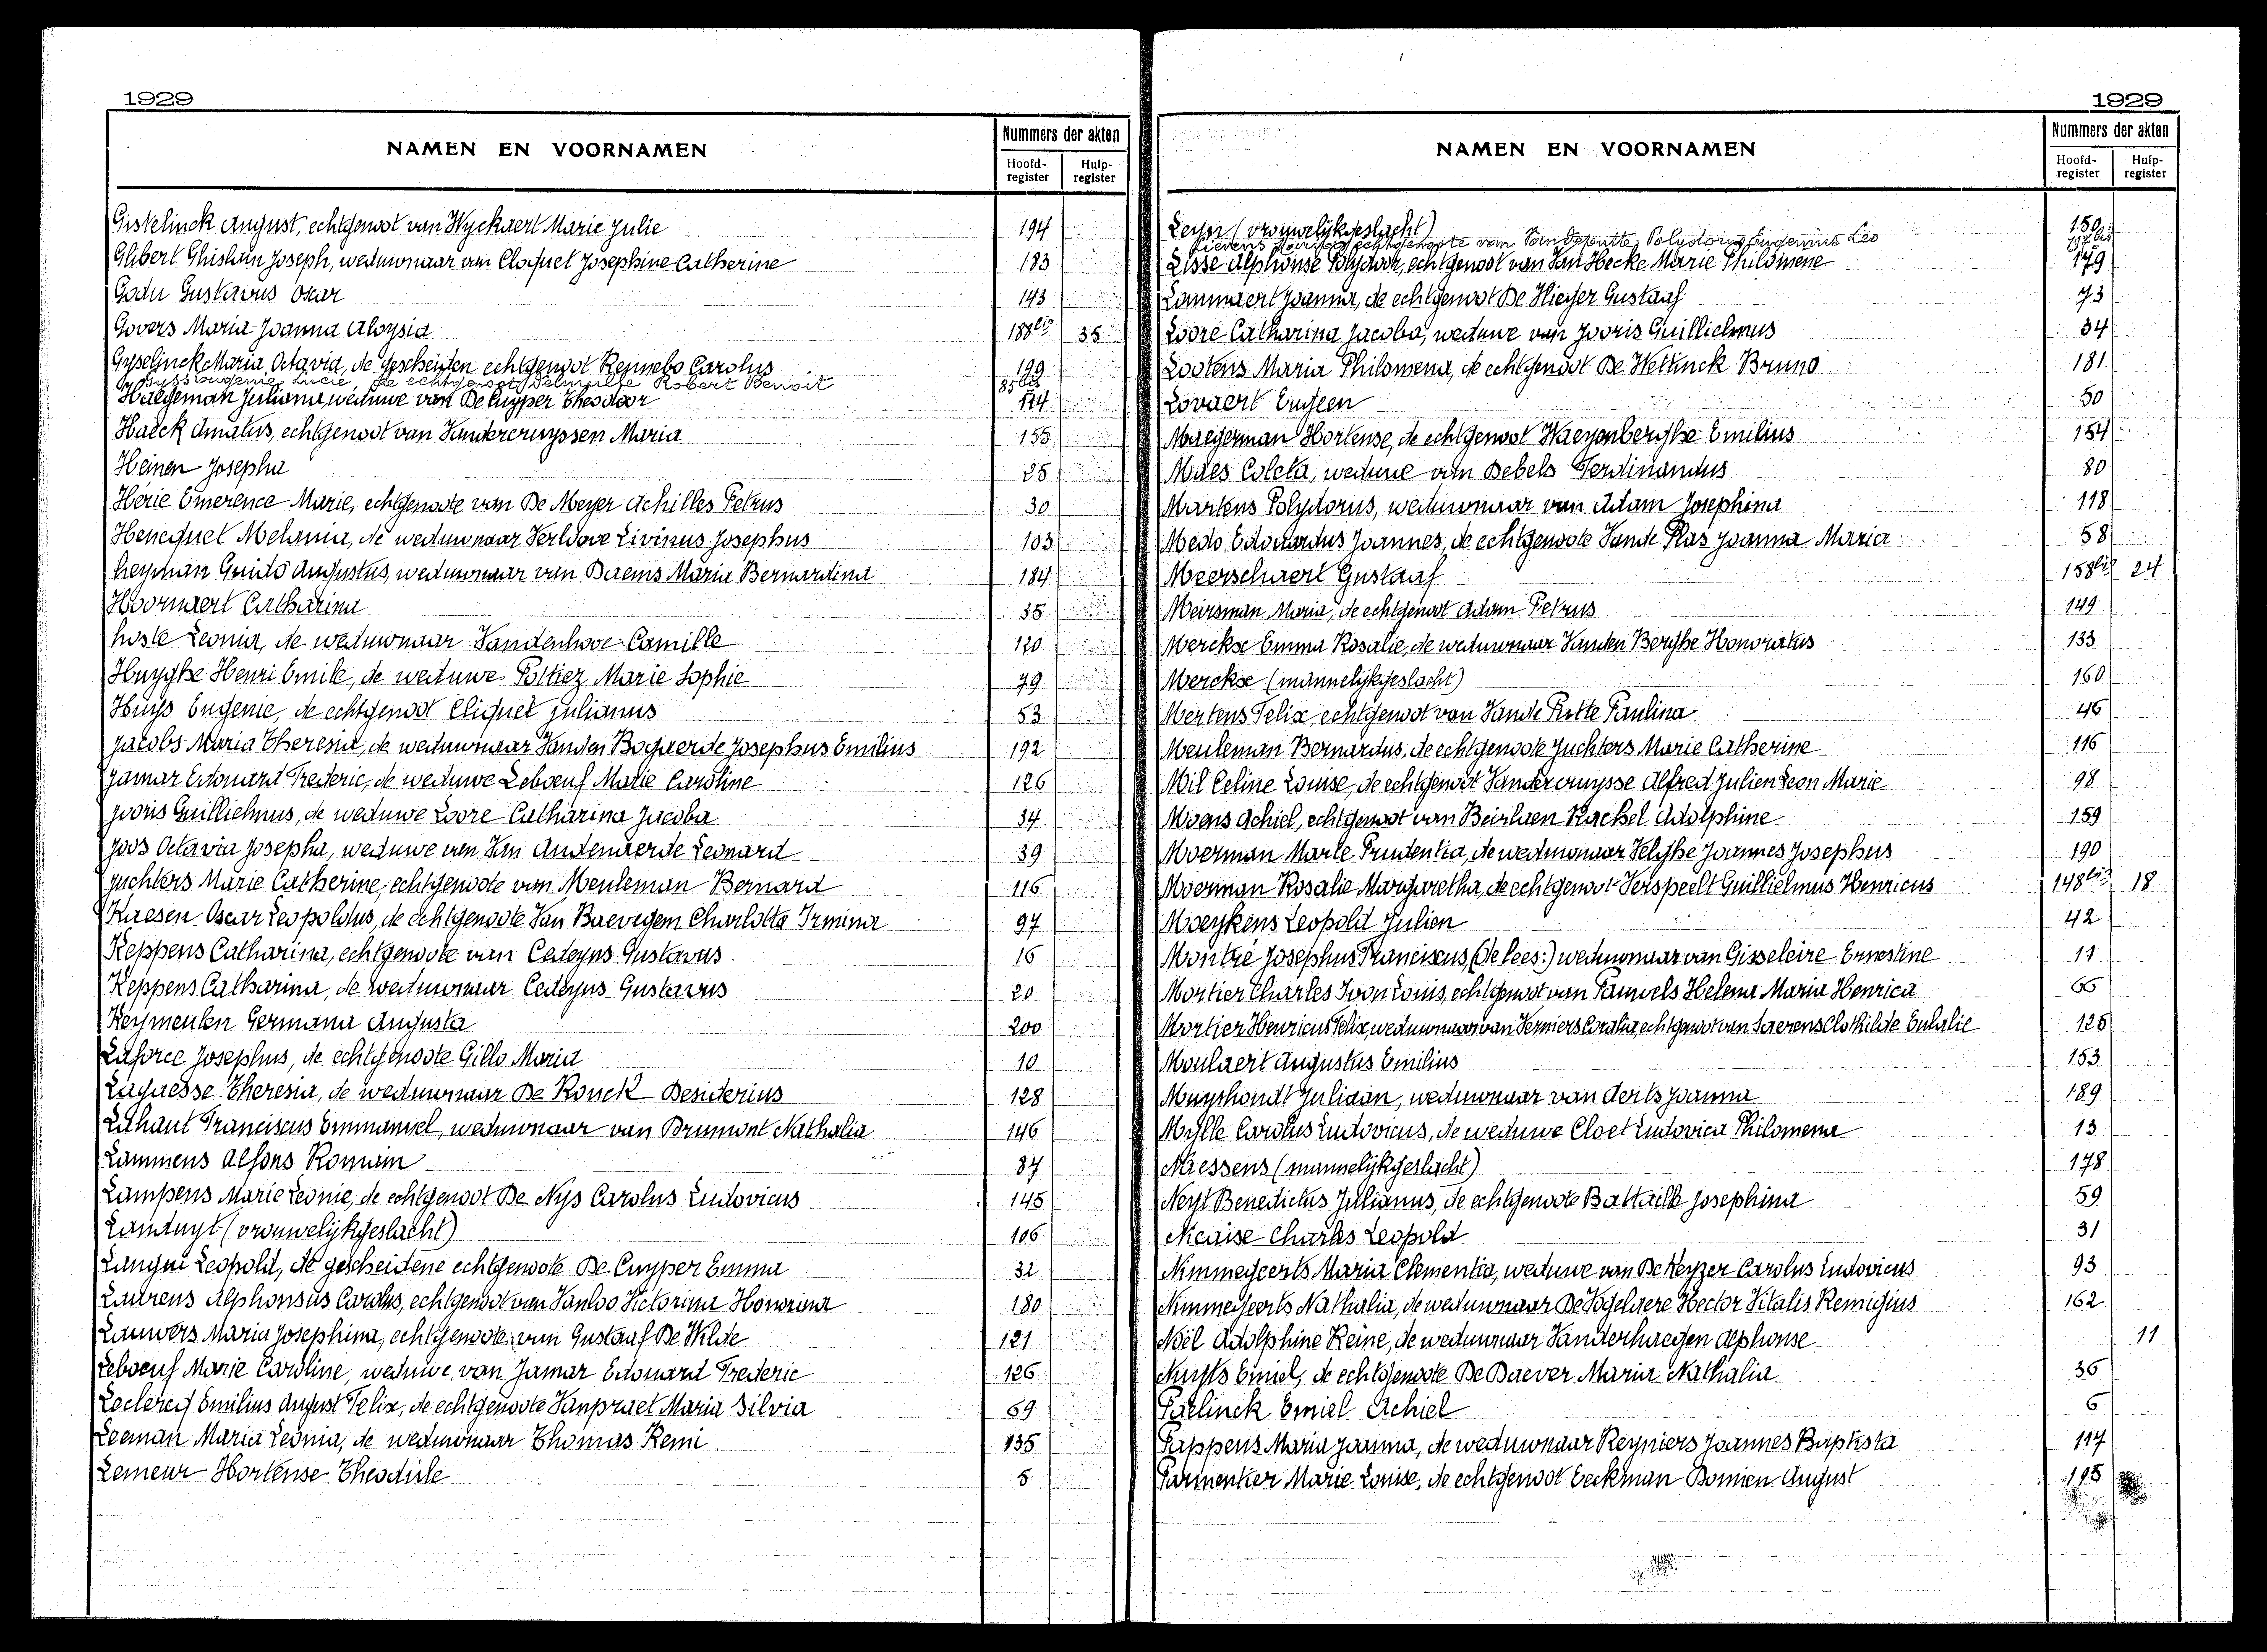 1929
NAMEN EN VOORNAMEN
Nummers der akten
Hoofd-register
Hulp-register
Gistelinck August, echtgenoot van Wyckaert Marie Julie 194
Glibert Ghislain Joseph, weduwnaar van Cloquet Josephine Catherine 183
Godu Gustavus Oscar 143
Govers Maria Joanna Aloysia 188bis 35
Gyselinck Maria Octavia, de gescheiden echtgenoot Rennebo Carolus 199
Gyss Eugenie Lucie, de echtgenoot Delmulle Robert Benoit 85bis
Haegeman Juliana, weduwe van De Cuyper Theodoor 174
Haeck Amatus, echtgenoot van Vandercruyssen Maria 155
Heinen Josepha 25
Herie Emerence Marie, echtgenoote van De Meyer Achilles Petrus 30
Henequet Melania, de weduwnaar Verldove Livinus Josephus 103
Heyman Guido Augustus, weduwnaar van Daems Maria Bernardina 184
Hoornaert Catharina 35
Hoste Leonia, de weduwnaar Vandenhove Camille 120
Huyghe Henri Emile, de weduwe Poltiez Marie Sophie 79
Huys Eugenie, de echtgenoot Cliquet Julianus 53
Jacobs Maria Theresia, de weduwnaar Vanden Bogaerde Josephus Emilius 192
Jamar Edouard Frederic, de weduwe Leboeuf Marie Caroline 126
Jooris Guillielmus, de weduwe Loore Catharina Jacoba 34
Joos Octavia Josepha, weduwe van Van Audenaerde Leonard 39
Juchters Marie Catherine, echtgenoote van Meuleman Bernard 116
Kaesen Oscar Leopoldus, de echtgenoote Van Baevegem Charlotta Irmina 97
Keppens Catharina, echtgenoote van Cedeyns Gustavus 16
Keppens Catharina, de weduwnaar Cedeyns Gustavus 20
Keymeulen Germana Augusta 200
Laforce Josephus, de echtgenoote Gillo Maria 10
Laquesse Theresia, de weduwnaar De Ronck Desiderius 128
Lahaut Franciscus Emmanuel, weduwnaar van Brumont Nathalia 146
Lammens Alfons Romain 87
Lampens Marie Leonie, de echtgenoot De Nijs Carolus Ludovicus 145
Landuyt (vrouwelijkgeslacht) 106
Langui Leopold, de gescheidene echtgenoote De Cuyper Emma 32
Laurens Alphonsus Carolus, echtgenoot van Vanloo Victorina Honorina 180
Lauwers Maria Josephina, echtgenoote van Gustaaf De Wilde 121
Leboeuf Marie Caroline, weduwe van Jamar Edouard Frederic 126
Leclercq Emilius August Felix, de echtgenoote Vanpraet Maria Silvia 69
Leeman Maria Leonia, de weduwnaar Thomas Remi 135
Lemeur Hortense Theodule 5
1929
NAMEN EN VOORNAMEN
Nummers der akten
Hoofd-register
Hulp-register
Leyor (vrouwelijkgeslacht) 150bis
Lievens echtgenoote van Vandeputte Polydorus Eugenius Leo
Lisse Alphonse Polydoor, echtgenoot van Van Hecke Marie Philomene 179
Lommaert Joanna, de echtgenoot De Vlieger Gustaaf 73
Loore Catharina Jacoba, weduwe van Jooris Guillielmus 34
Lootens Maria Philomena, de echtgenoot De Wettinck Bruno 181
Lovaert Eugeen 50
Maegerman Hortense, de echtgenoot Waeyenberghe Emilius 154
Maes Coleta, weduwe van Debels Ferdinandus 80
Martens Polydorus, weduwnaar van Adam Josephina 118
Medo Edouardus Joannes, de echtgenoote Vande Plas Joanna Maria 58
Meerschaert Gustaaf 158bis 24
Meirsman Maria, de echtgenoot Adam Petrus 149
Merckse Emma Rosalie, de weduwnaar Vanden Berghe Honoratus 133
Merckse (mannelijkgeslacht) 160
Mertens Felix, echtgenoot van Vande Putte Paulina 46
Meuleman Bernardus, de echtgenoote Juchters Marie Catherine 116
Mil Celine Louise, de echtgenoot Vandercruysse Alfred Julien Leon Marie 98
Moens Achiel, echtgenoot van Beirlaen Rachel Adolphine 159
Moerman Marie Prudentia, de weduwnaar Velghe Joannes Josephus 190
Moerman Rosalie Margaretha, de echtgenoot Verspeelt Guillielmus Henricus 148bis 18
Moeykens Leopold Julien 42
Montie Josephus Franciscus, (de lees:) weduwnaar van Gisseleire Ernestine 11
Mortier Charles Ivon Louis, echtgenoot van Pauwels Helena Maria Henrica 66
Mortier Henricus Felix, weduwnaar van Verniers Coralia, echtgenoot van Saerens Clothilde Eulalie 125
Moulaert Augustus Emilius 153
Muyshondt Juliaan, weduwnaar van Aerts Joanna 189
Mylle Carolus Ludovicus, de weduwe Cloet Ludovica Philomena 13
Naessens (mannelijkgeslacht) 178
Neyt Benedictus Julianus, de echtgenoote Battaille Josephina 59
Nicaise Charles Leopold 31
Nimmegeerts Maria Clementia, weduwe van De Keyzer Carolus Ludovicus 93
Nimmegeerts Nathalia, de weduwnaar De Vogelaere Hector Vitalis Remigius 162
Noël Adolphine Reine, de weduwnaar Vanderhaegen Alphonse 11
Nuyts Emiel, de echtgenoote De Baever Maria Nathalia 36
Paelinck Emiel Achiel 6
Pappens Maria Joanna, de weduwnaar Reyniers Joannes Baptista 117
Parmentier Marie Louise, de echtgenoot Eeckman Domien August 195